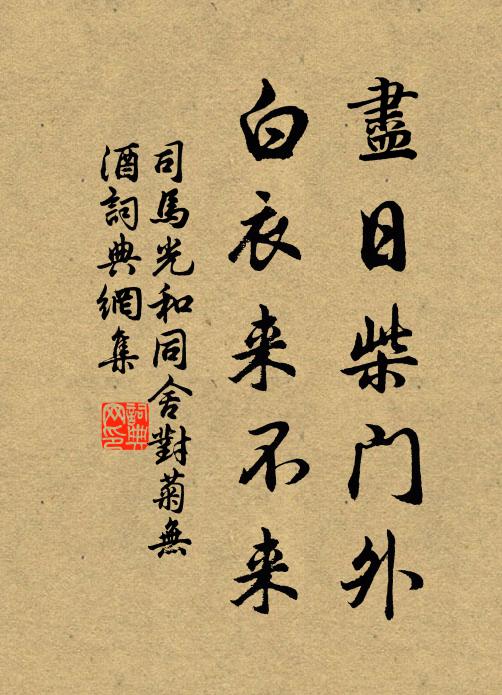 盡日柴门外
白衣来不来
司馬光和同舍對菊無
酒詞典網集
詞典
网印